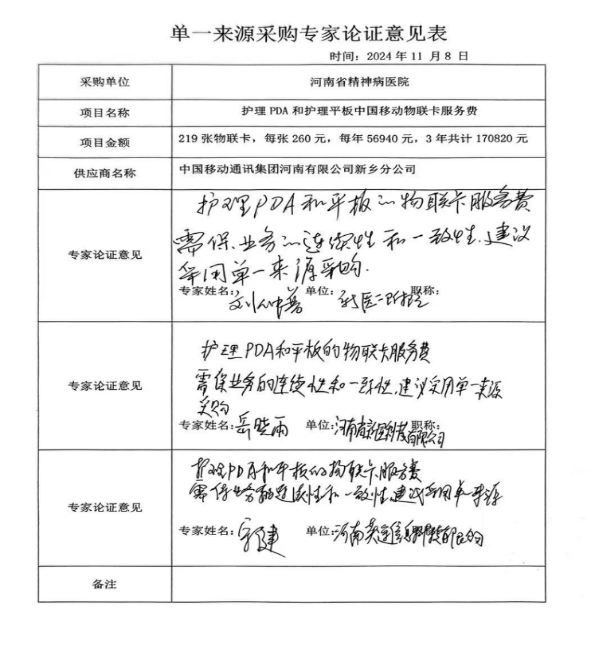 单一来源采购专家论证意见表
时间：2024 年 11 月 8 日
采购单位
河南省精神病医院
项目名称
护理 PDA 和护理平板中国移动物联卡服务费
项目金额
219 张物联卡，每张 260 元，每年 56940 元，3 年共计 170820 元
供应商名称
中国移动通讯集团河南有限公司新乡分公司
专家论证意见
护理PDA和平板的物联卡服务费
需保业务的连续性和一致性.建议
采用单一来源采购.
专家姓名：刘 单位： 职称：
专家论证意见
护理PDA和平板的物联卡服务费
需保业务的连续性和一致性,建议采用单一来源
采购
专家姓名：岳晓雨 单位：河南 有限公司 职称：
专家论证意见
护理PDA和平板的物联卡服务费
需保业务的连续性和一致性建议采用单一来源
专家姓名：宋建 单位：河南
备注